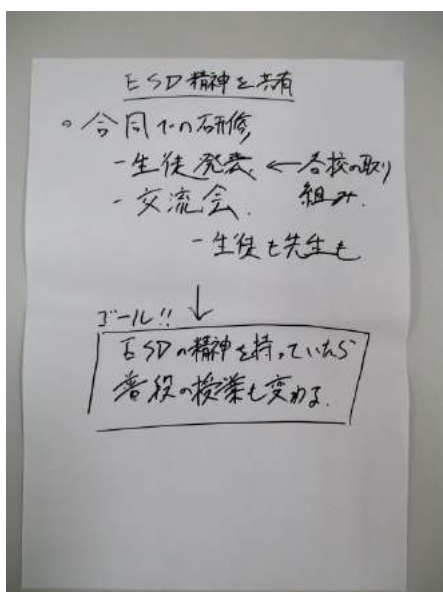 ESD精神を共有
○合同での研修
-生徒発表 ←各校の取り
組み.
-交流会.
-生徒も先生も
↓
ゴール!!
ESDの精神を持っていたら
普段の授業も変わる.